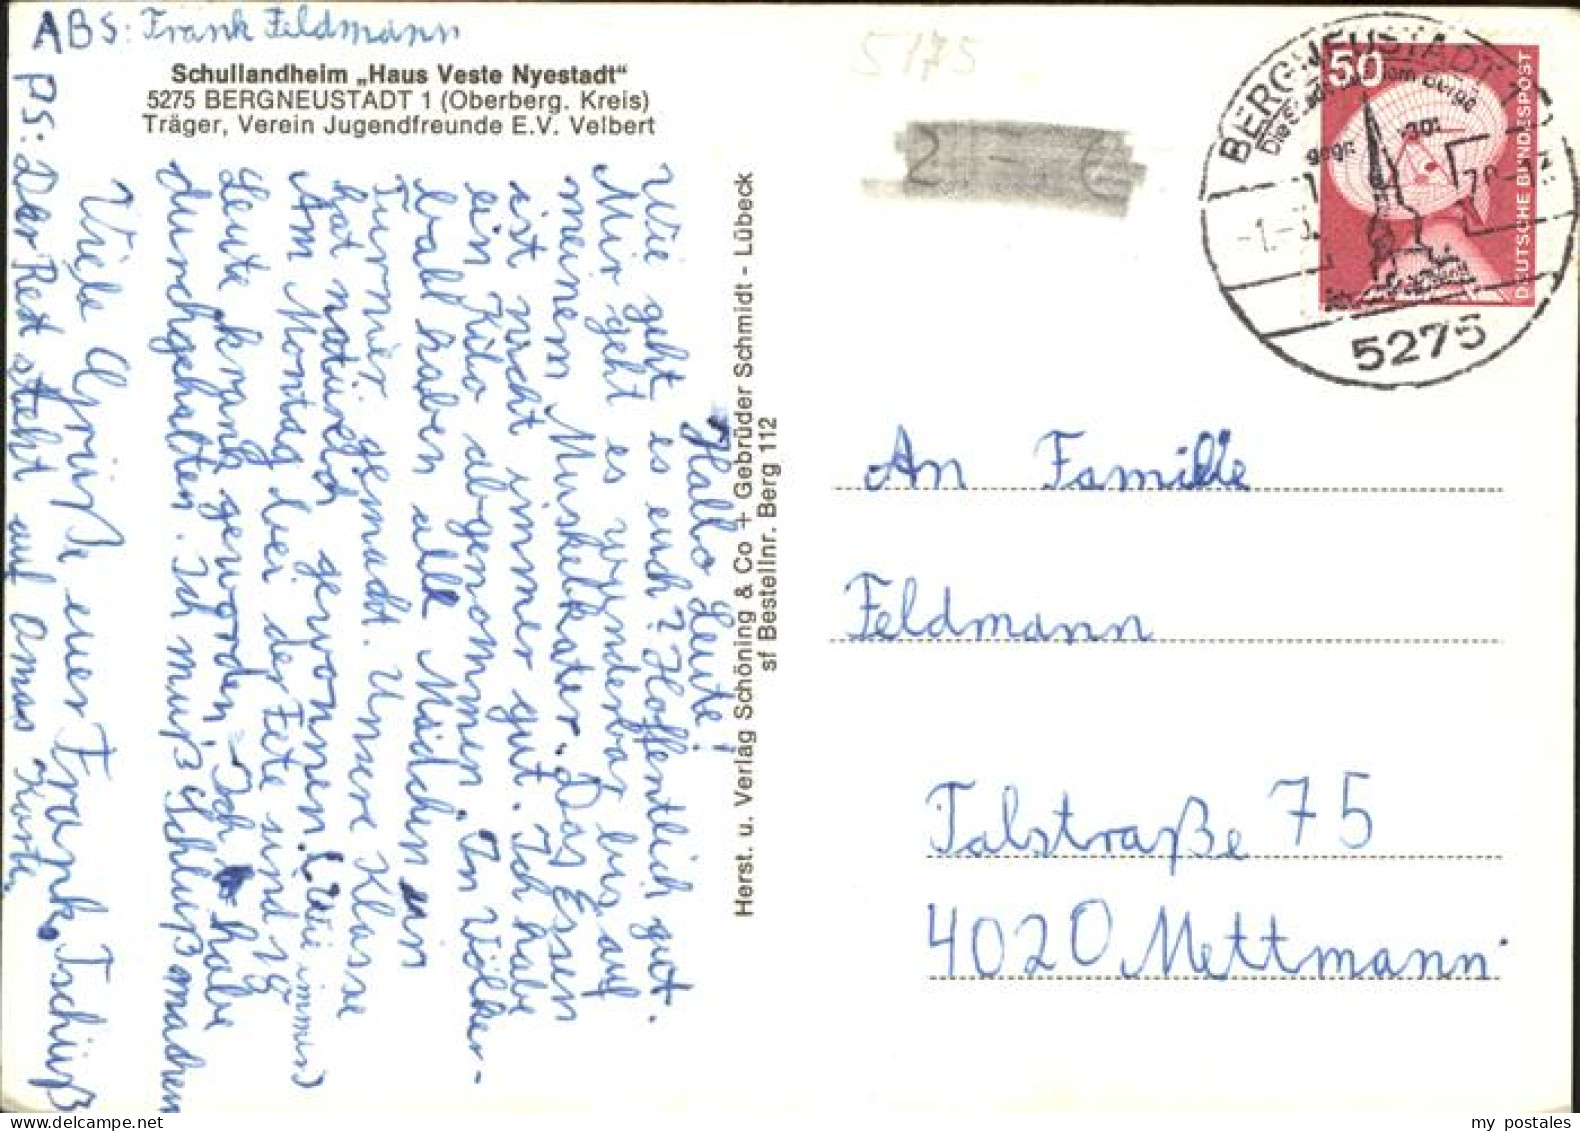 ABS: Frank Feldmann
Schullandheim „Haus Veste Nyestadt"
5275 BERGNEUSTADT 1 (Oberberg. Kreis)
Träger, Verein Jugendfreunde E.V. Velbert
Hallo Leute!
Wie geht es euch? Hoffentlich gut.
Mir geht es wunderbar bis auf
meinem Muskelkater. Das Essen
ist nicht immer gut. Ich habe
ein Kilo abgenommen. In Völker-
ball haben alle Mädchen ein
Turnier gemacht. Unsere Klasse
hat natürlich gewonnen. (Wie immer)
Am Montag bei der Fete sind 18
Leute krank geworden. Ich habe
durchgehalten. Ich muß Schluß machen
Viele Grüße euer Frank. Tschüß
PS: Der Rest steht auf Omas Karte.
Herst. u. Verlag Schöning & Co + Gebrüder Schmidt - Lübeck
sf Bestellnr. Berg 112
5175
50
DEUTSCHE BUNDESPOST
BERGNEUSTADT 1
5275
An Familie
Feldmann
Talstraße 75
4020 Mettmann
my postales